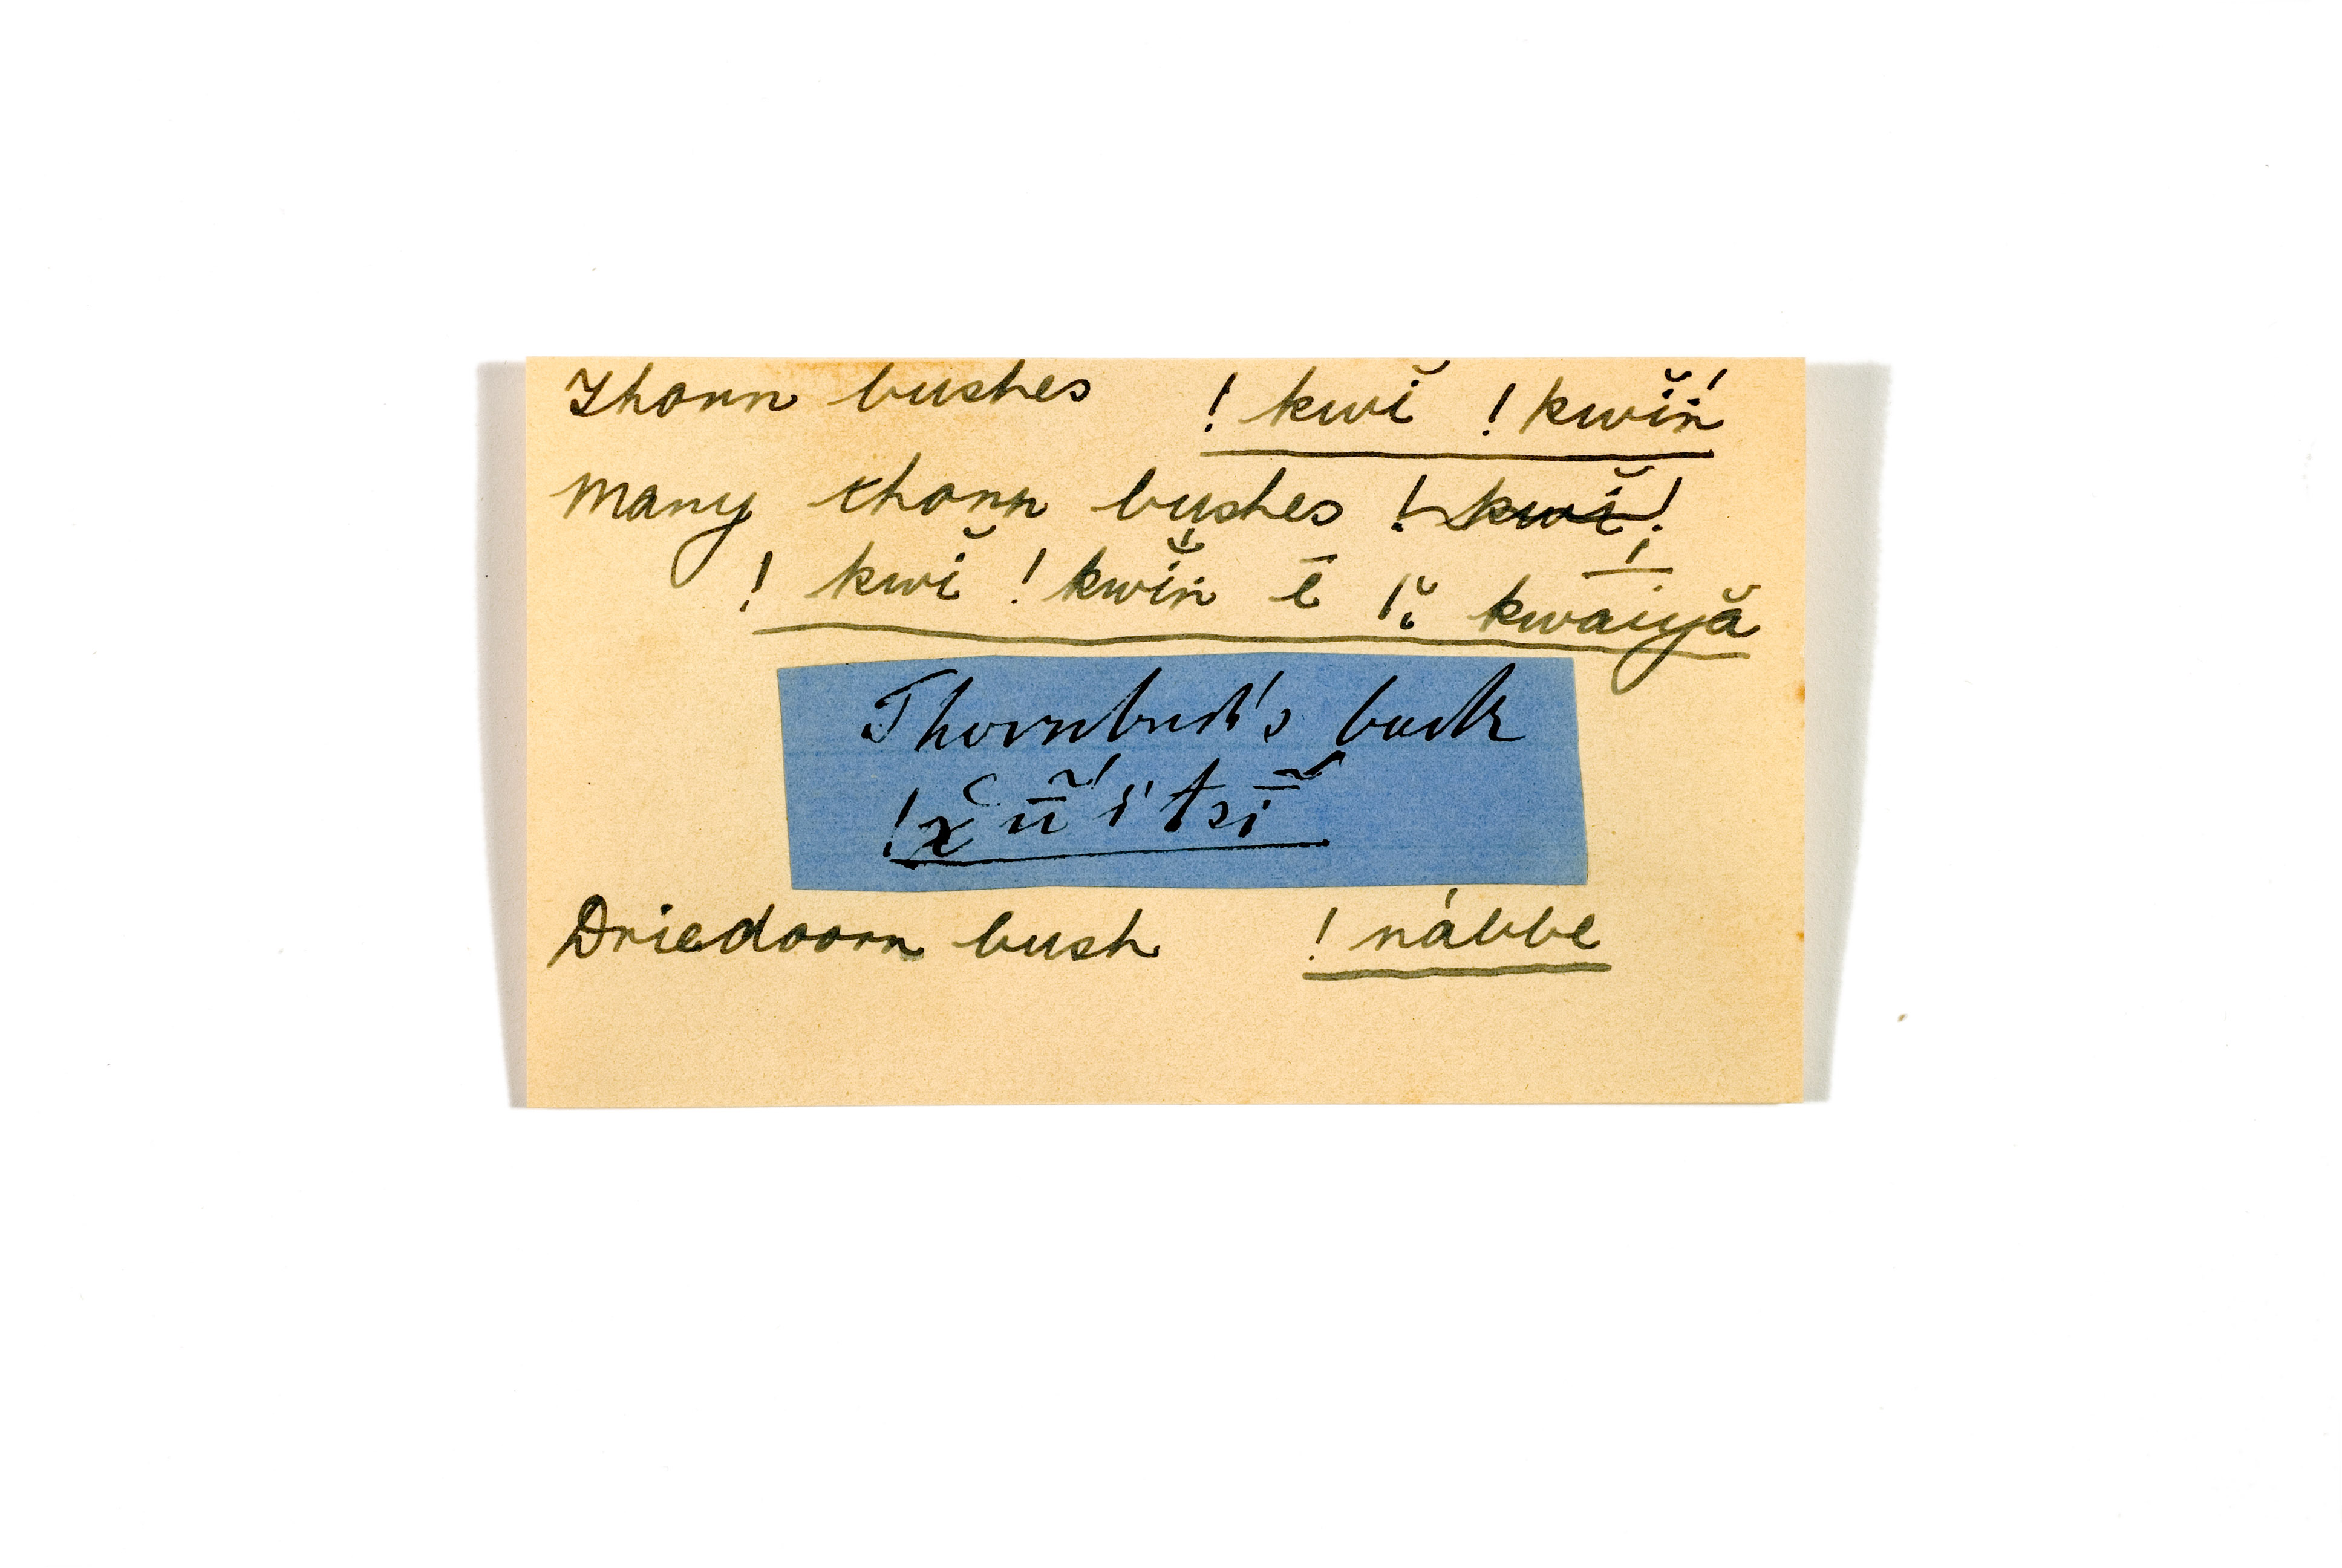 Thorn bushes !kwĭ !kwĭń
Many thorn bushes ! ~~kwĭ~~ !
!kwĭ !kwĭń ē |ẹ̆ kwāiyă
Thornbush's back
Driedoorn bush !nábbe